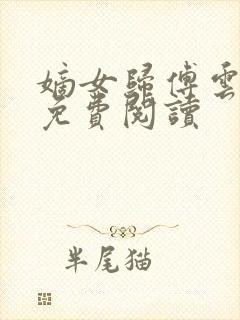 嫡女歸傅雲
免費閱讀
半尾猫